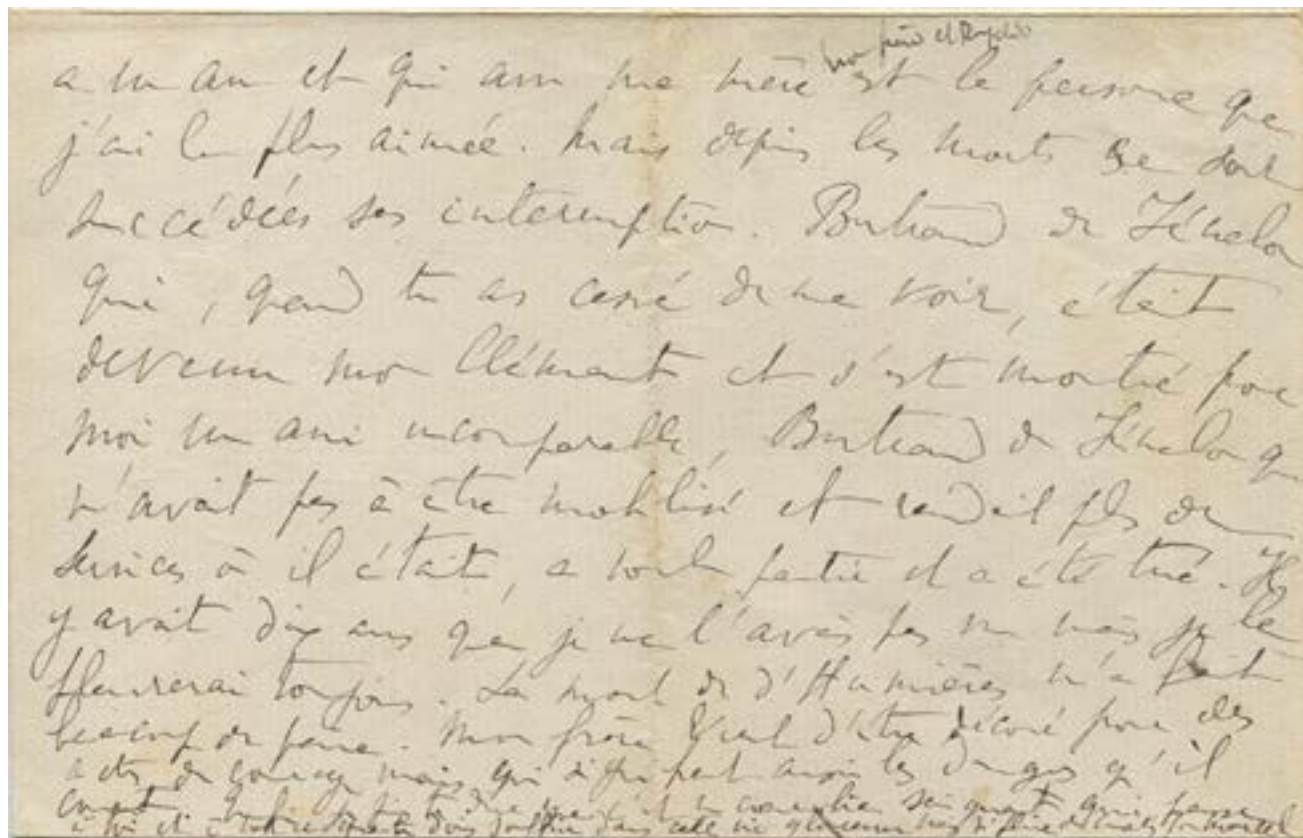 mon père et Reynaldo
a un an et qui avec ma mère est la personne que
j'ai le plus aimée. Mais depuis les morts se sont
succédées sans interruption. Bertrand de Fénelon
qui, quand tu as cessé de me voir, était
devenu mon Clément et s'est montré pour
moi un ami incomparable, Bertrand de Fénelon qui
n'avait pas à être mobilisé et rendait plus de
services où il était, a voulu partir et a été tué. Il
y avait dix ans que je ne l'avais pas vu mais je le
pleurerai toujours. La mort de d'Humières m'a fait
beaucoup de peine. Mon frère vient d'être décoré pour des
actes de courage mais qui signifient aussi les dangers qu'il
court.